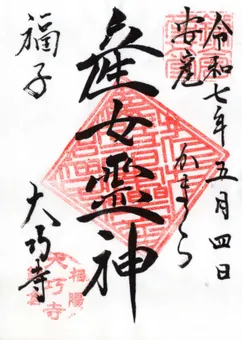 令和七年五月四日
安産
かまくら
産女霊神
福子
大巧寺
相陽
大巧寺